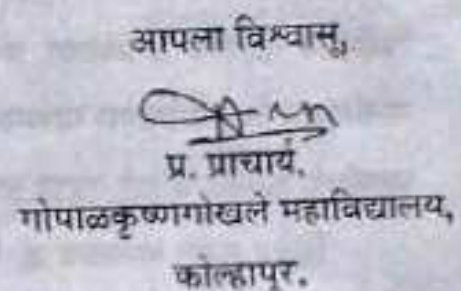 आपला विश्वासू,
प्र. प्राचार्य,
गोपाळकृष्णगोखले महाविद्यालय,
कोल्हापूर.